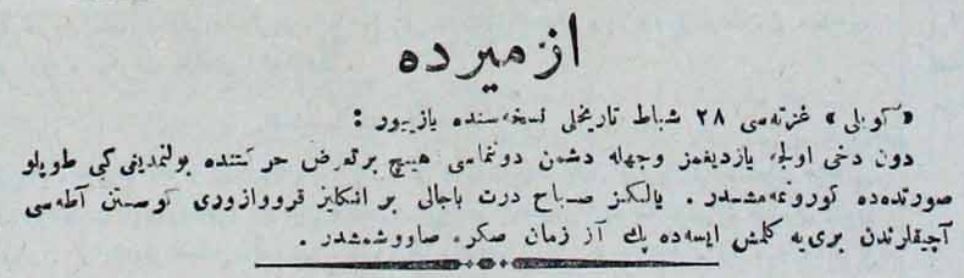 ازميرده
«كويلى» غزته‌سى ٢٨ شباط تاريخلى نسخه‌سنده يازييور :
دون دخى اولجه يازديغمز وجهله دشمن دوننماسى هيچ بر تعرض حركتنده بولنمديغى كبى طوپلو
صورتده‌ده كورونمه‌مشدر . يالكز صباح درت باجالى بر انكليز قرووازورى كوستن آطه‌سى
آچيقلرندن برى‌يه كلمش ايسه‌ده پك آز زمان صكره صاووشمشدر .